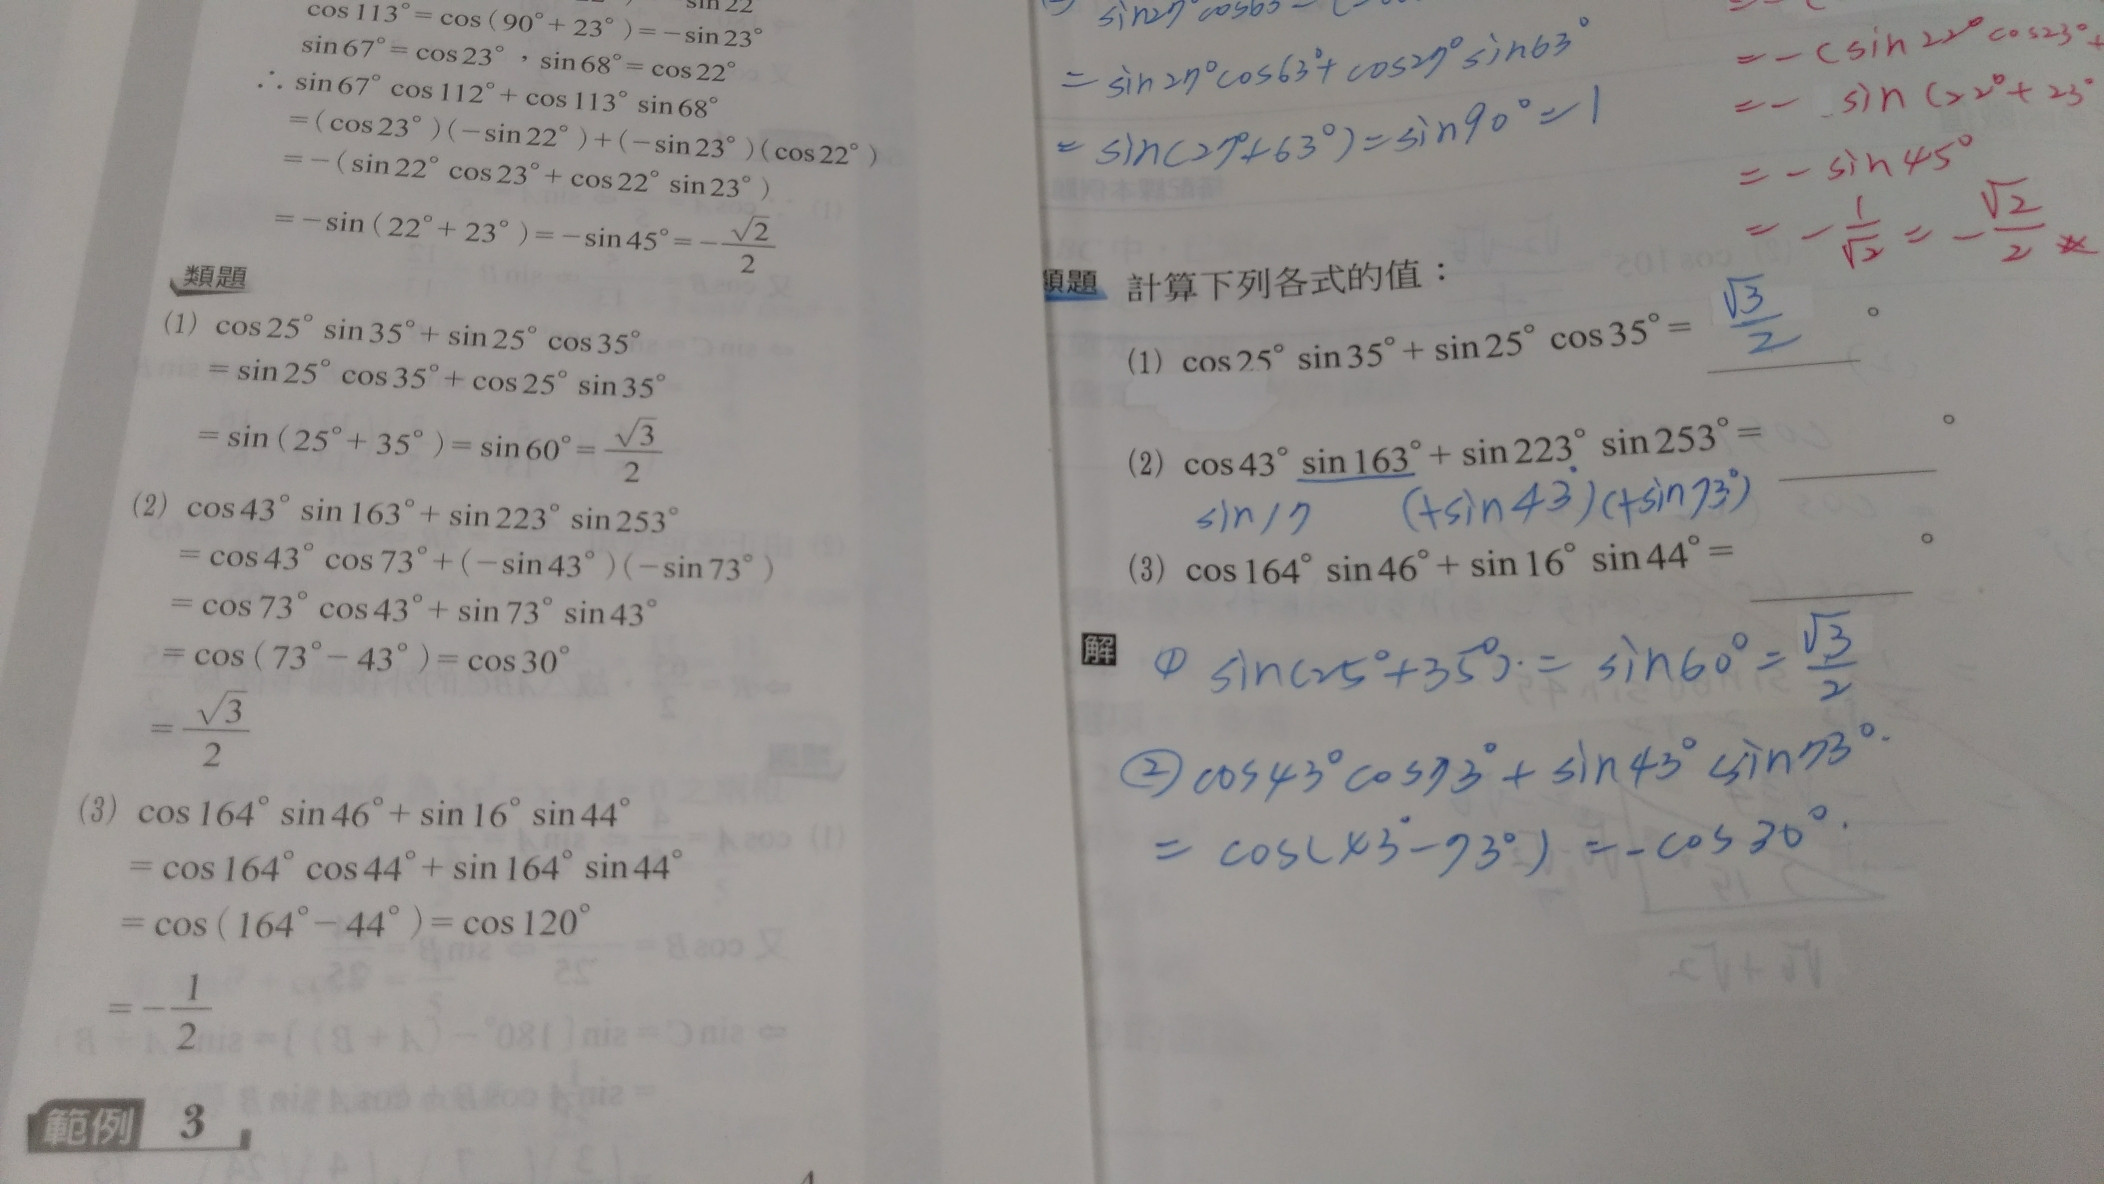 cos 113° = cos ( 90° + 23° ) = − sin 23°
sin 67° = cos 23° ，sin 68° = cos 22°
∴ sin 67° cos 112° + cos 113° sin 68°
= ( cos 23° ) ( − sin 22° ) + ( − sin 23° ) ( cos 22° )
= − ( sin 22° cos 23° + cos 22° sin 23° )
= − sin ( 22° + 23° ) = − sin 45° = − √2/2
類題
(1) cos 25° sin 35° + sin 25° cos 35°
= sin 25° cos 35° + cos 25° sin 35°
= sin ( 25° + 35° ) = sin 60° = √3/2
(2) cos 43° sin 163° + sin 223° sin 253°
= cos 43° cos 73° + ( − sin 43° ) ( − sin 73° )
= cos 73° cos 43° + sin 73° sin 43°
= cos ( 73° − 43° ) = cos 30°
= √3/2
(3) cos 164° sin 46° + sin 16° sin 44°
= cos 164° cos 44° + sin 164° sin 44°
= cos ( 164° − 44° ) = cos 120°
= − 1/2
範例 3
= sin27°cos63° + cos27°sin63°
= sin(27°+63°) = sin90° = 1
= − (sin22° cos23° +
= − sin(22° + 23°
= − sin45°
= − 1/√2 = − √2/2
類題 計算下列各式的值：
(1) cos 25° sin 35° + sin 25° cos 35° = √3/2 。
(2) cos 43° sin 163° + sin 223° sin 253° = 。
sin17 (+sin43°)(+sin73°)
(3) cos 164° sin 46° + sin 16° sin 44° = 。
解 ① sin(25°+35°) = sin60° = √3/2
② cos43° cos73° + sin43° sin73°
= cos(43°−73°) = −cos30°